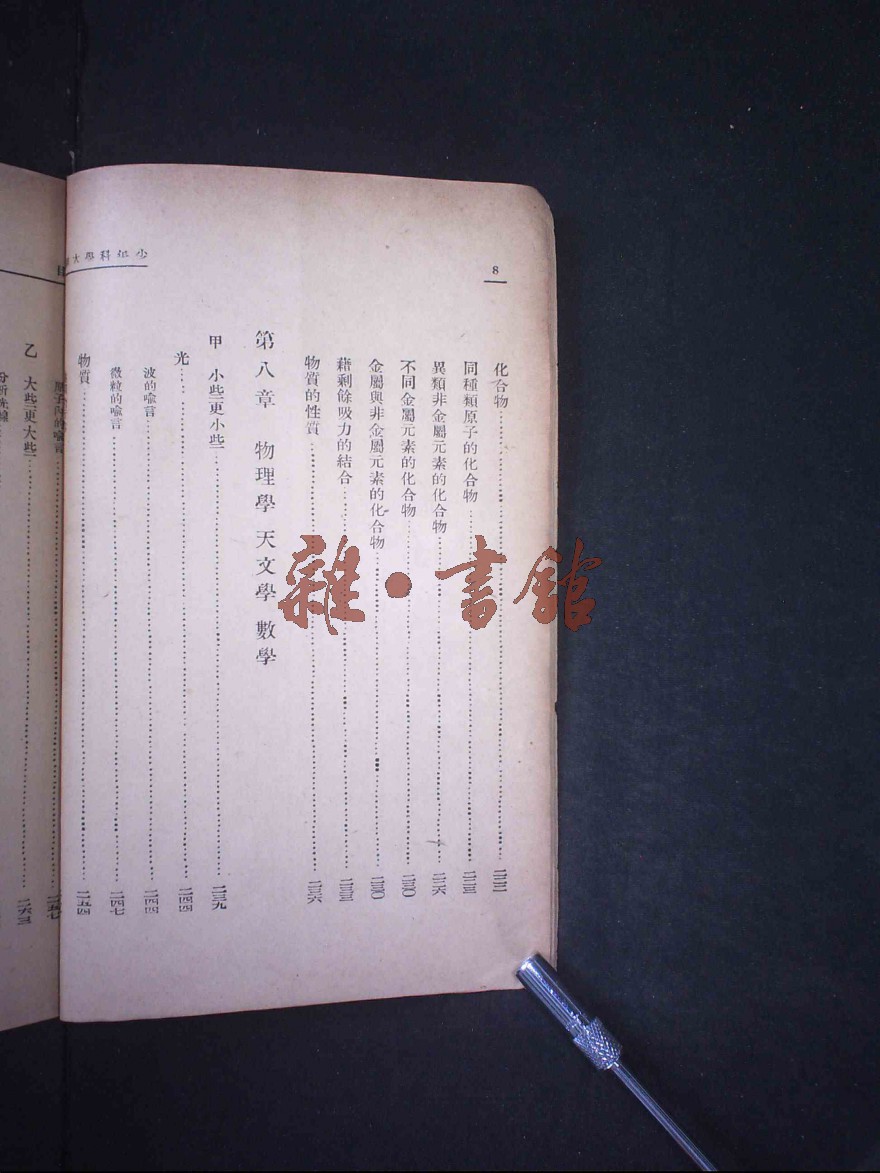 8
少年科學大
化合物…………二二二
同種類原子的化合物…………二二三
異類非金屬元素的化合物…………二二六
不同金屬元素的化合物…………二三〇
金屬與非金屬元素的化合物…………二三〇
藉剩餘吸力的結合…………二三三
物質的性質…………二三六
第八章 物理學 天文學 數學
甲 小些更小些…………二三九
光…………二四四
波的喩言…………二四四
微粒的喩言…………二四七
物質…………二五四
子內的喩言…………二五七
乙 大些更大些…………二六三
分析光線
雜·書館